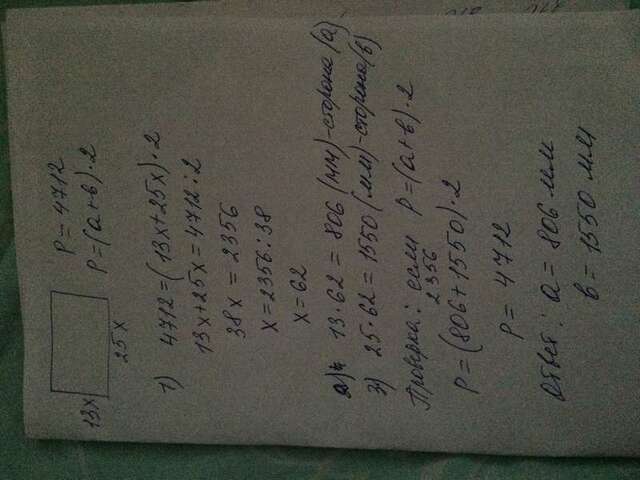 P = 4712
13x
P = (a+b)·2
25x
1) 4712 = (13x+25x)·2
13x+25x = 4712:2
38x = 2356
x = 2356:38
x = 62
2) 13·62 = 806 (мм) - сторона (a)
3) 25·62 = 1550 (мм) - сторона (b)
Проверка: если P = (a+b)·2
2356
P = (806+1550)·2
P = 4712
Ответ: a = 806 мм
b = 1550 мм